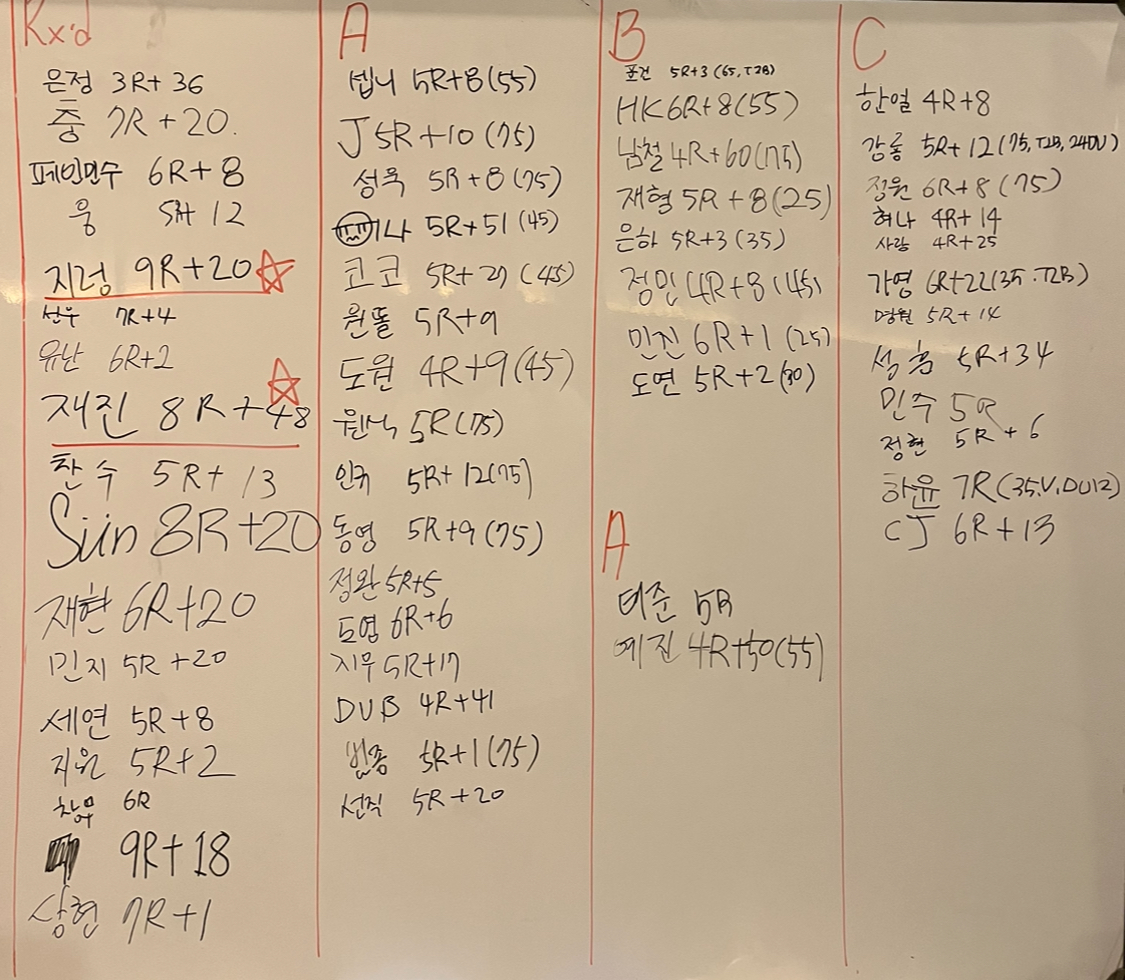 Rx'd
은정 3R+36
중 7R+20.
페인민수 6R+8
웅 5R+12
지렁 9R+20
선우 7R+4
유난 6R+2
재진 8R+48
찬수 5R+13
Sun 8R+20
재현 6R+20
민지 5R+20
세연 5R+8
지원 5R+2
6R
9R+18
상현 7R+1
A
셉니 5R+8(55)
J 5R+10(75)
성욱 5R+8(75)
5R+51(45)
코코 5R+27(45)
원똘 5R+9
도원 4R+9(45)
원식 5R(75)
인규 5R+12(75)
동영 5R+9(75)
정완 5R+5
도영 6R+6
지무 5R+17
DUB 4R+41
범종 5R+1(75)
선직 5R+20
B
포건 5R+3(65, T2B)
HK 6R+8(55)
남철 4R+60(75)
재형 5R+8(25)
은하 5R+3(35)
정민 4R+8(45)
민진 6R+1(25)
도연 5R+2(30)
A
태준 5R
예진 4R+50(55)
C
한열 4R+8
강룡 5R+12(75, T2B, 24DU)
정원 6R+8(75)
허나 4R+14
사랑 4R+25
가영 6R+22(35.T2B)
명원 5R+14
성흠 5R+34
민주 5R
정현 5R+6
하윤 7R(35,V,DU12)
CJ 6R+13